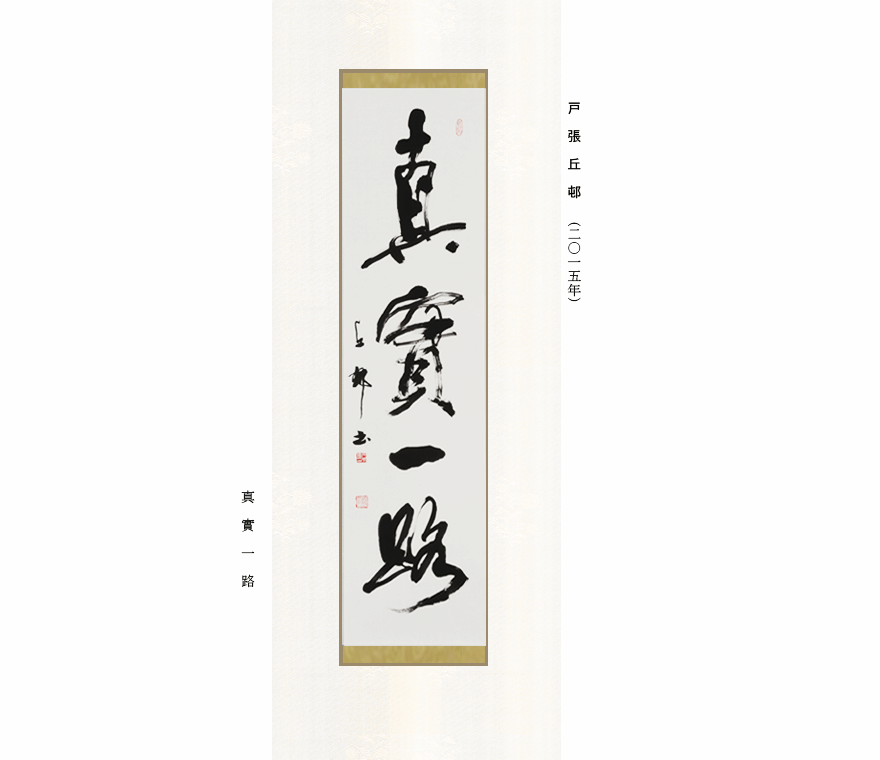 戸張丘邨 (二〇一五年)
真實一路
丘邨書
真實一路